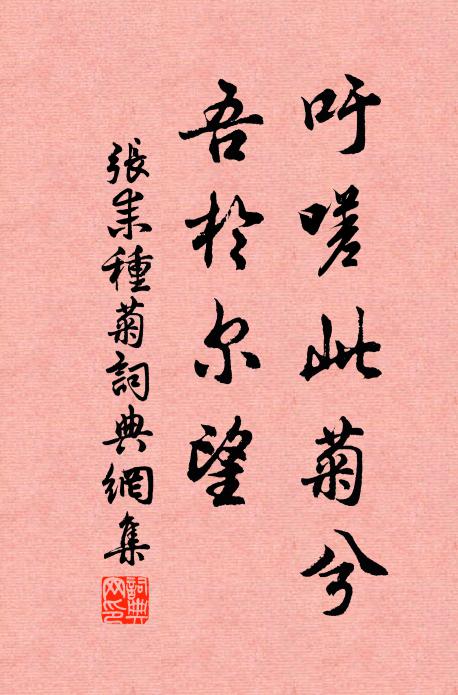 吁嗟此菊兮
吾於尔望
張耒種菊詞典網集
詞典网印